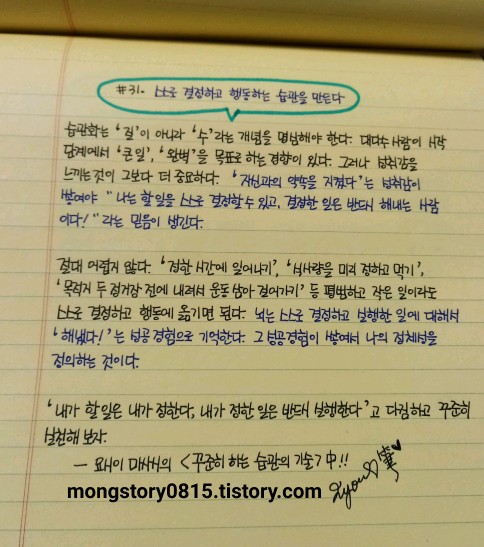 #31. 스스로 결정하고 행동하는 습관을 만든다
습관화는 '질'이 아니라 '수'라는 개념을 명심해야 한다. 대다수 사람이 시작
단계에서 '큰 일', '완벽'을 목표로 하는 경향이 있다. 그러나 성취감을
느끼는 것이 그보다 더 중요하다. '자신과의 약속을 지켰다'는 성취감이
쌓여야 "나는 할 일을 스스로 결정할 수 있고, 결정한 일은 반드시 해내는 사람
이다!" 라는 믿음이 생긴다.
절대 어렵지 않다. '정한 시간에 일어나기', '식사량을 미리 정하고 먹기',
'목적지 두 정거장 전에 내려서 운동 삼아 걸어가기' 등 평범하고 작은 일이라도
스스로 결정하고 행동에 옮기면 된다. 뇌는 스스로 결정하고 실행한 일에 대해서
'해냈다!'는 성공 경험으로 기억한다. 그 성공 경험이 쌓여서 나의 정체성을
정의하는 것이다.
'내가 할 일은 내가 정한다, 내가 정한 일은 반드시 실행한다'고 다짐하고 꾸준히
실천해 보자.
- 요시이 마사시의 <꾸준히 하는 습관의 기술> 中!!
mongstory0815.tistory.com